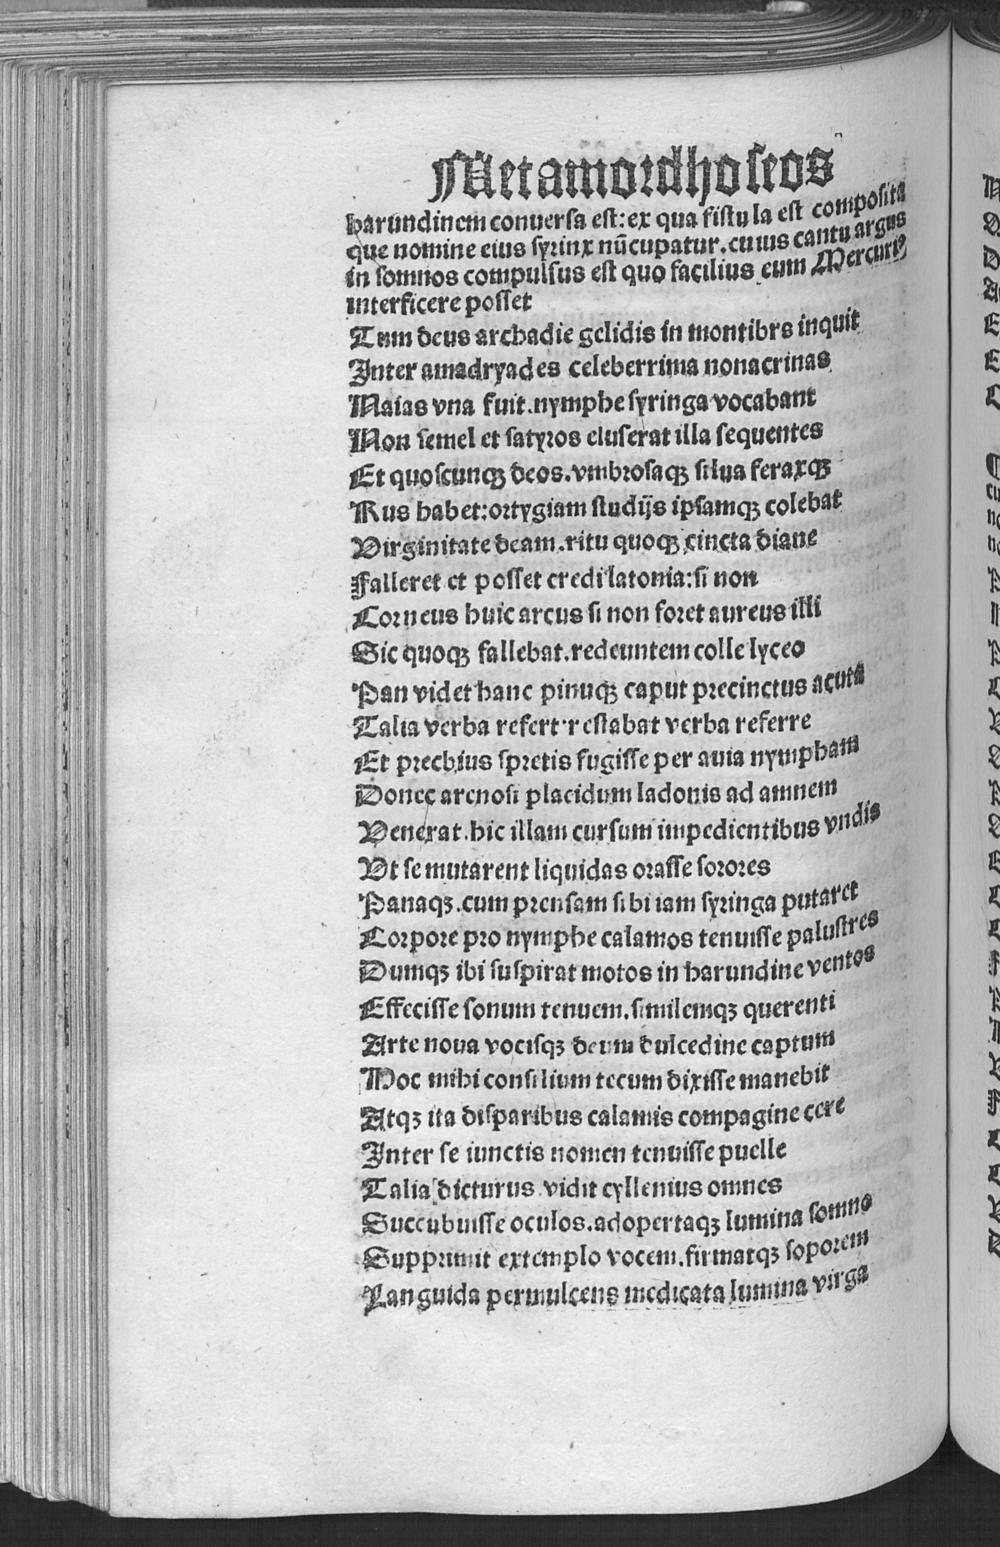 Metamordhoseos
harundinem conuersa est: ex qua fistula est composita
que nomine eius syrinx nūcupatur. cuius cantu argus
in somnos compulsus est quo facilius eum Mercuriꝰ
interficere posset
Tum deus archadie gelidis in montibrs inquit
Inter amadryades celeberrima nonacrinas
Naias vna fuit. nymphe syringa vocabant
Non semel et satyros eluserat illa sequentes
Et quoscunqꝫ deos. vmbrosaqꝫ silua feraxqꝫ
Rus habet: ortygiam studijs ipsamqꝫ colebat
Virginitate deam. ritu quoqꝫ cincta diane
Falleret et posset credi latonia: si non
Corneus huic arcus si non foret aureus illi
Sic quoqꝫ fallebat. redeuntem colle lyceo
Pan videt hanc pinuqꝫ caput precinctus acuta
Talia verba refert restabat verba referre
Et precbius spretis fugisse per auia nympham
Donec arenosi placidum ladonis ad amnem
Venerat. hic illam cursum impedientibus vndis
Vt se mutarent liquidas orasse sorores
Panaqꝫ. cum prensam sibi iam syringa putaret
Corpore pro nymphe calamos tenuisse palustres
Dumqꝫ ibi suspirat motos in harundine ventos
Effecisse sonum tenuem. similemqꝫ querenti
Arte noua vocisqꝫ deum dulcedine captum
Hoc mihi consilium tecum dixisse manebit
Atqꝫ ita disparibus calamis compagine cere
Inter se iunctis nomen tenuisse puelle
Talia dicturus vidit cyllenius omnes
Succubuisse oculos. adopertaqꝫ lumina somno
Supprimit extemplo vocem. firmatqꝫ soporem
Languida permulcens medicata lumina virga